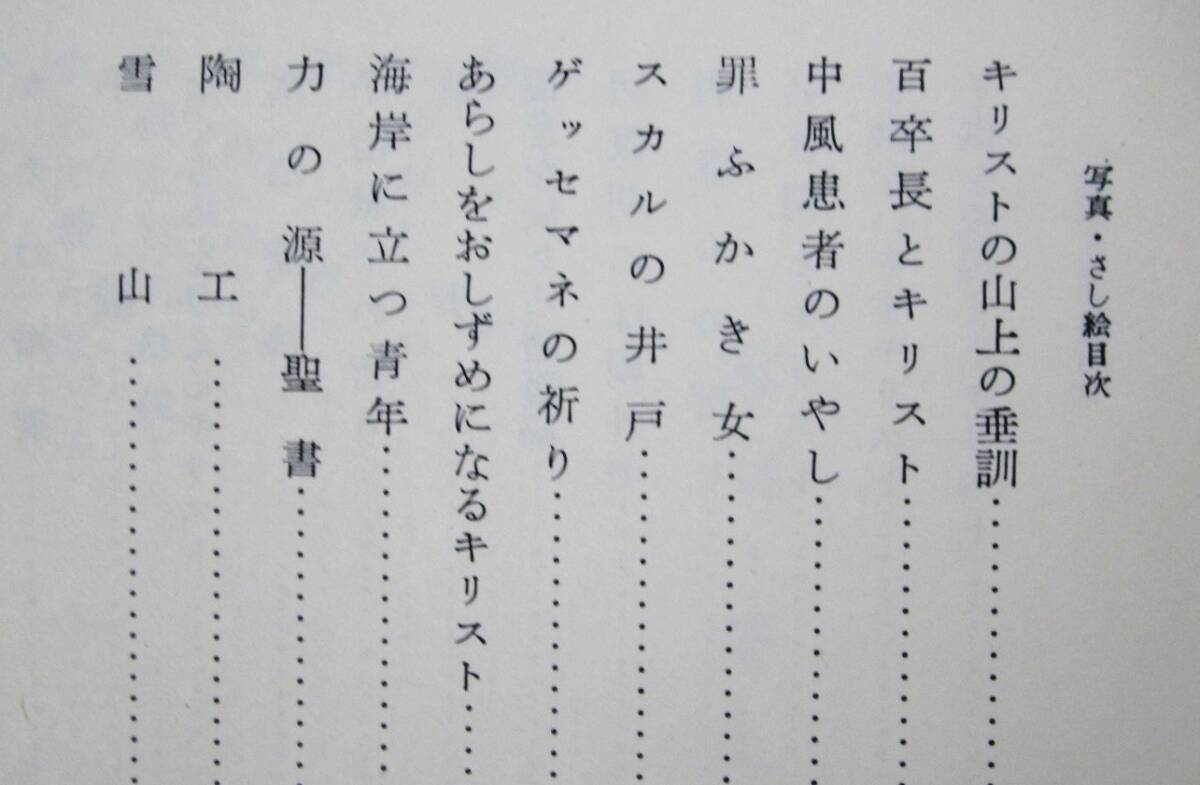 写真・さし絵目次
キリストの山上の垂訓……………
百卒長とキリスト……………
中風患者のいやし……………
罪ふかき女……………
スカルの井戸……………
ゲッセマネの祈り……………
あらしをおしずめになるキリスト……
海岸に立つ青年……………
力の源――聖書……………
陶工……………………
雪山……………………